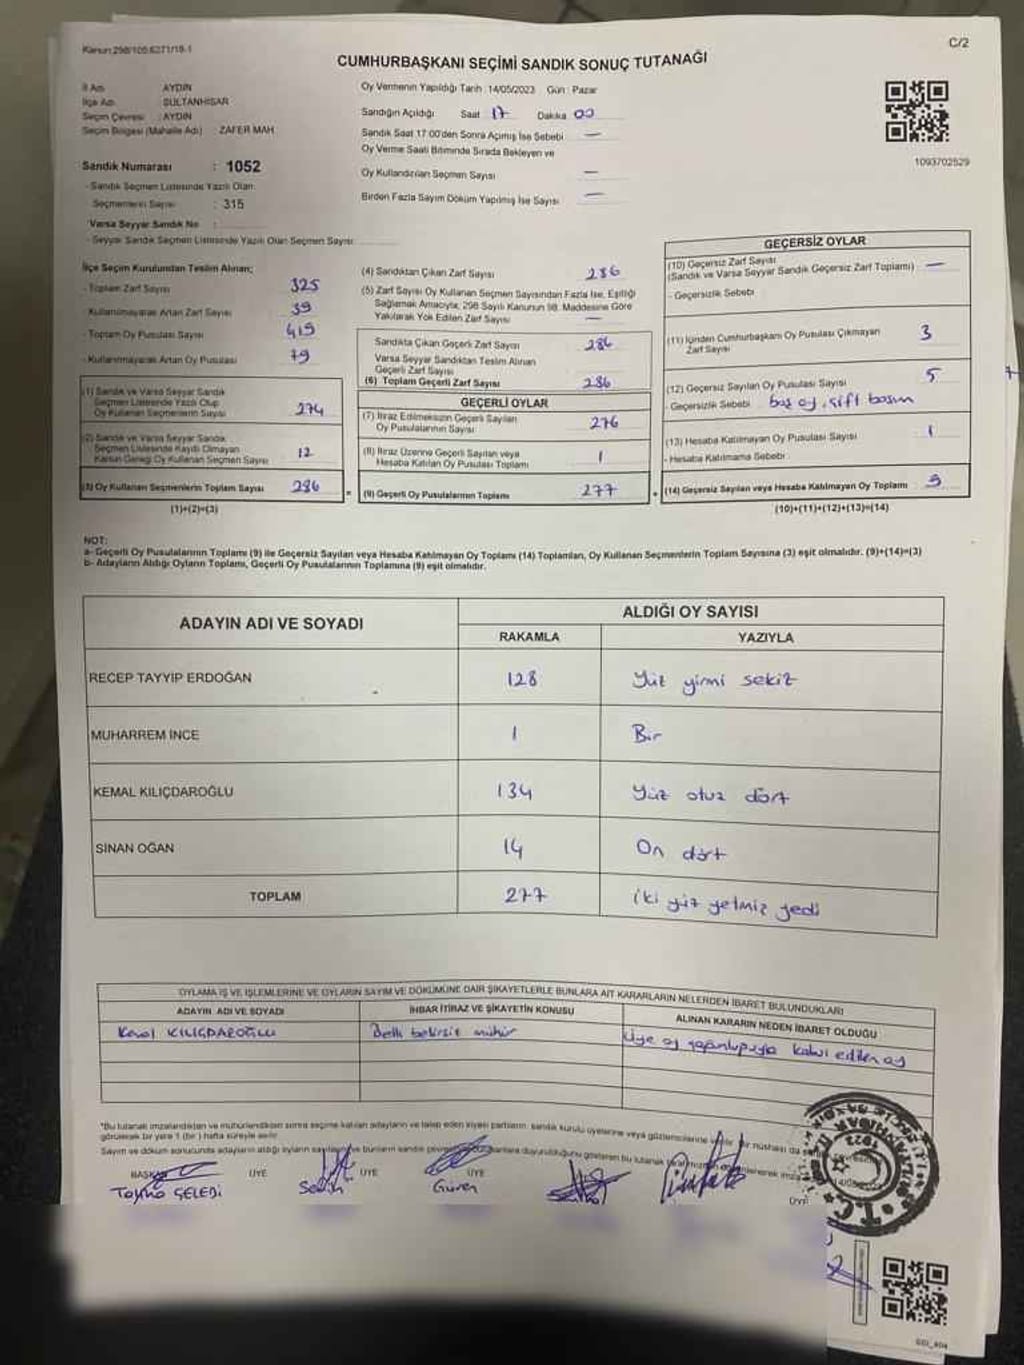 Kanun:298/105,6271/18-1
C/2
CUMHURBAŞKANI SEÇİMİ SANDIK SONUÇ TUTANAĞI
İl Adı : AYDIN
İlçe Adı : SULTANHİSAR
Seçim Çevresi : AYDIN
Seçim Bölgesi (Mahalle Adı) : ZAFER MAH.
Sandık Numarası : 1052
- Sandık Seçmen Listesinde Yazılı Olan
Seçmenlerin Sayısı : 315
Varsa Seyyar Sandık No :
- Seyyar Sandık Seçmen Listesinde Yazılı Olan Seçmen Sayısı
Oy Vermenin Yapıldığı Tarih : 14/05/2023 Gün : Pazar
Sandığın Açıldığı Saat 17 Dakika 00
Sandık Saat 17:00'den Sonra Açımış İse Sebebi —
Oy Verme Saati Bitiminde Sırada Bekleyen ve
Oy Kullandırılan Seçmen Sayısı —
Birden Fazla Sayım Döküm Yapılmış İse Sayısı —
1093702529
İlçe Seçim Kurulundan Teslim Alınan;
- Toplam Zarf Sayısı 325
- Kullanılmayarak Artan Zarf Sayısı 39
- Toplam Oy Pusulası Sayısı 419
- Kullanılmayarak Artan Oy Pusulası 79
(1) Sandık ve Varsa Seyyar Sandık
Seçmen Listesinde Yazılı Olup
Oy Kullanan Seçmenlerin Sayısı 274
(2) Sandık ve Varsa Seyyar Sandık
Seçmen Listesinde Kaydı Olmayan
Kanun Gereği Oy Kullanan Seçmen Sayısı 12
(3) Oy Kullanan Seçmenlerin Toplam Sayısı 286
(1)+(2)=(3)
(4) Sandıktan Çıkan Zarf Sayısı 286
(5) Zarf Sayısı Oy Kullanan Seçmen Sayısından Fazla İse, Eşitliği
Sağlamak Amacıyla, 298 Sayılı Kanunun 98. Maddesine Göre
Yakılarak Yok Edilen Zarf Sayısı —
Sandıkta Çıkan Geçerli Zarf Sayısı 286
Varsa Seyyar Sandıktan Teslim Alınan
Geçerli Zarf Sayısı
(6) Toplam Geçerli Zarf Sayısı 286
GEÇERLİ OYLAR
(7) İtiraz Edilmeksizin Geçerli Sayılan
Oy Pusulalarının Sayısı 276
(8) İtiraz Üzerine Geçerli Sayılan veya
Hesaba Katılan Oy Pusulası Toplamı 1
= (9) Geçerli Oy Pusulalarının Toplamı 277
GEÇERSİZ OYLAR
(10) Geçersiz Zarf Sayısı
(Sandık ve Varsa Seyyar Sandık Geçersiz Zarf Toplamı) —
- Geçersizlik Sebebi
(11) İçinden Cumhurbaşkanı Oy Pusulası Çıkmayan
Zarf Sayısı 3
(12) Geçersiz Sayılan Oy Pusulası Sayısı 5
- Geçersizlik Sebebi boş oy, çift basım
(13) Hesaba Katılmayan Oy Pusulası Sayısı 1
- Hesaba Katılmama Sebebi
+ (14) Geçersiz Sayılan veya Hesaba Katılmayan Oy Toplamı 9
(10)+(11)+(12)+(13)=(14)
NOT:
a- Geçerli Oy Pusulalarının Toplamı (9) ile Geçersiz Sayılan veya Hesaba Katılmayan Oy Toplamı (14) Toplamları, Oy Kullanan Seçmenlerin Toplam Sayısına (3) eşit olmalıdır. (9)+(14)=(3)
b- Adayların Aldığı Oyların Toplamı, Geçerli Oy Pusulalarının Toplamına (9) eşit olmalıdır.
ADAYIN ADI VE SOYADI ALDIĞI OY SAYISI
RAKAMLA YAZIYLA
RECEP TAYYİP ERDOĞAN 128 Yüz yirmi sekiz
MUHARREM İNCE 1 Bir
KEMAL KILIÇDAROĞLU 134 Yüz otuz dört
SİNAN OĞAN 14 On dört
TOPLAM 277 iki yüz yetmiz yedi
OYLAMA İŞ VE İŞLEMLERİNE VE OYLARIN SAYIM VE DÖKÜMÜNE DAİR ŞİKAYETLERLE BUNLARA AİT KARARLARIN NELERDEN İBARET BULUNDUKLARI
ADAYIN ADI VE SOYADI İHBAR İTİRAZ VE ŞİKAYETİN KONUSU ALINAN KARARIN NEDEN İBARET OLDUĞU
Kemal KILIÇDAROĞLU Belli belirsiz mühür Üye oy kabul edilen oy
*Bu tutanak imzalandıktan ve mühürlendikten sonra seçime katılan adayların ve talep eden siyasi partilerin, sandık kurulu üyelerine veya gözlemcilerine
görülecek bir yere 1 (bir) hafta süreyle asılır.
Sayım ve döküm sonucunda adayların aldığı oyların
BAŞKAN ÜYE ÜYE ÜYE ÜYE
ÇELEBİ
T.C.